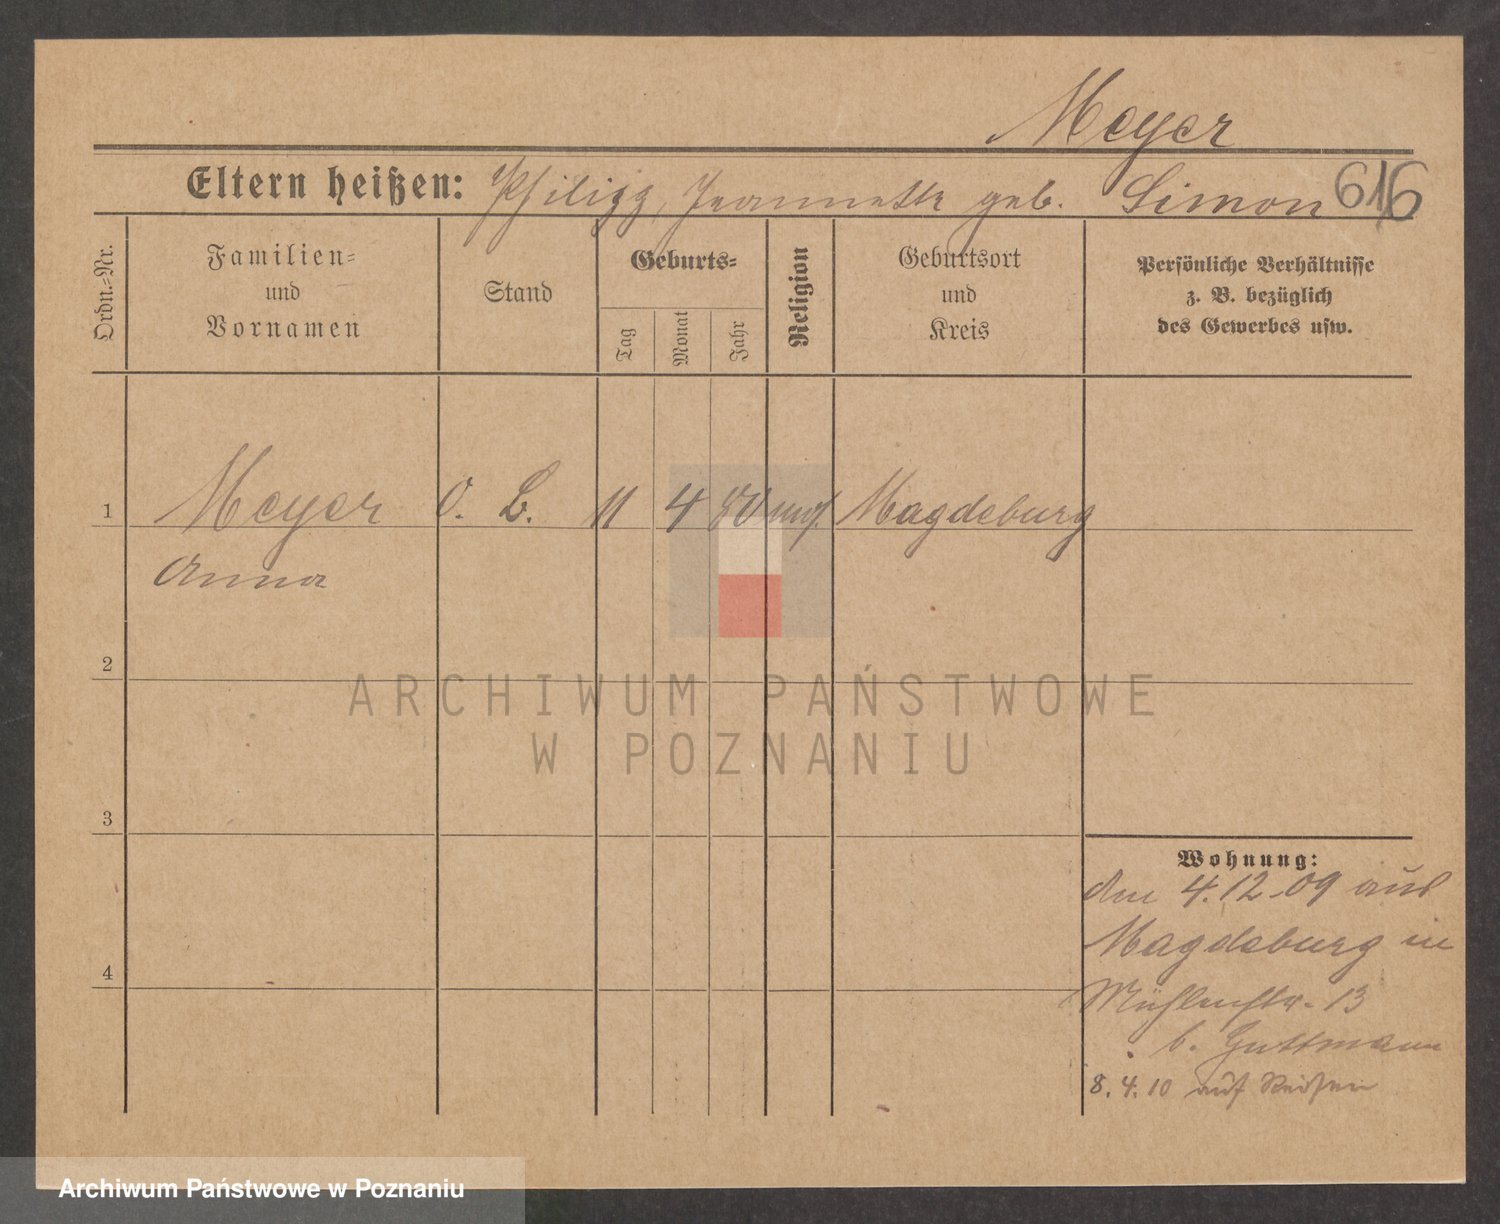 Meyer
Eltern heißen: Philipp, Jeannette geb. Simon 616
Ordn.=Nr.
Familien=
und
Vornamen
Stand
Geburts=
Tag
Monat
Jahr
Religion
Geburtsort
und
Kreis
Persönliche Verhältnisse
z. B. bezüglich
des Gewerbes usw.
1 Meyer O. L. 11 4 80 mos. Magdeburg
Anna
2
3
4
Wohnung:
den 4.12.09 aus
Magdeburg in
Mühlenstr. 13
b. Guttmann
8.4.10 auf Reisen
ARCHIWUM PAŃSTWOWE
W POZNANIU
Archiwum Państwowe w Poznaniu